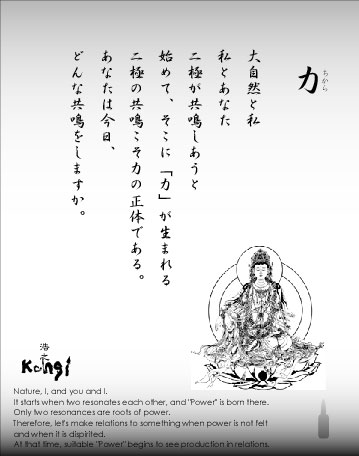 力
ちから
大自然と私
私とあなた
二極が共鳴しあうと
始めて、そこに「力」が生まれる
二極の共鳴こそ力の正体である。
あなたは今日、
どんな共鳴をしますか。
Kongi
Nature, I, and you and I.
It starts when two resonates each other, and "Power" is born there.
Only two resonances are roots of power.
Therefore, let's make relations to something when power is not felt
and when it is dispirited.
At that time, suitable "Power" begins to see production in relations.